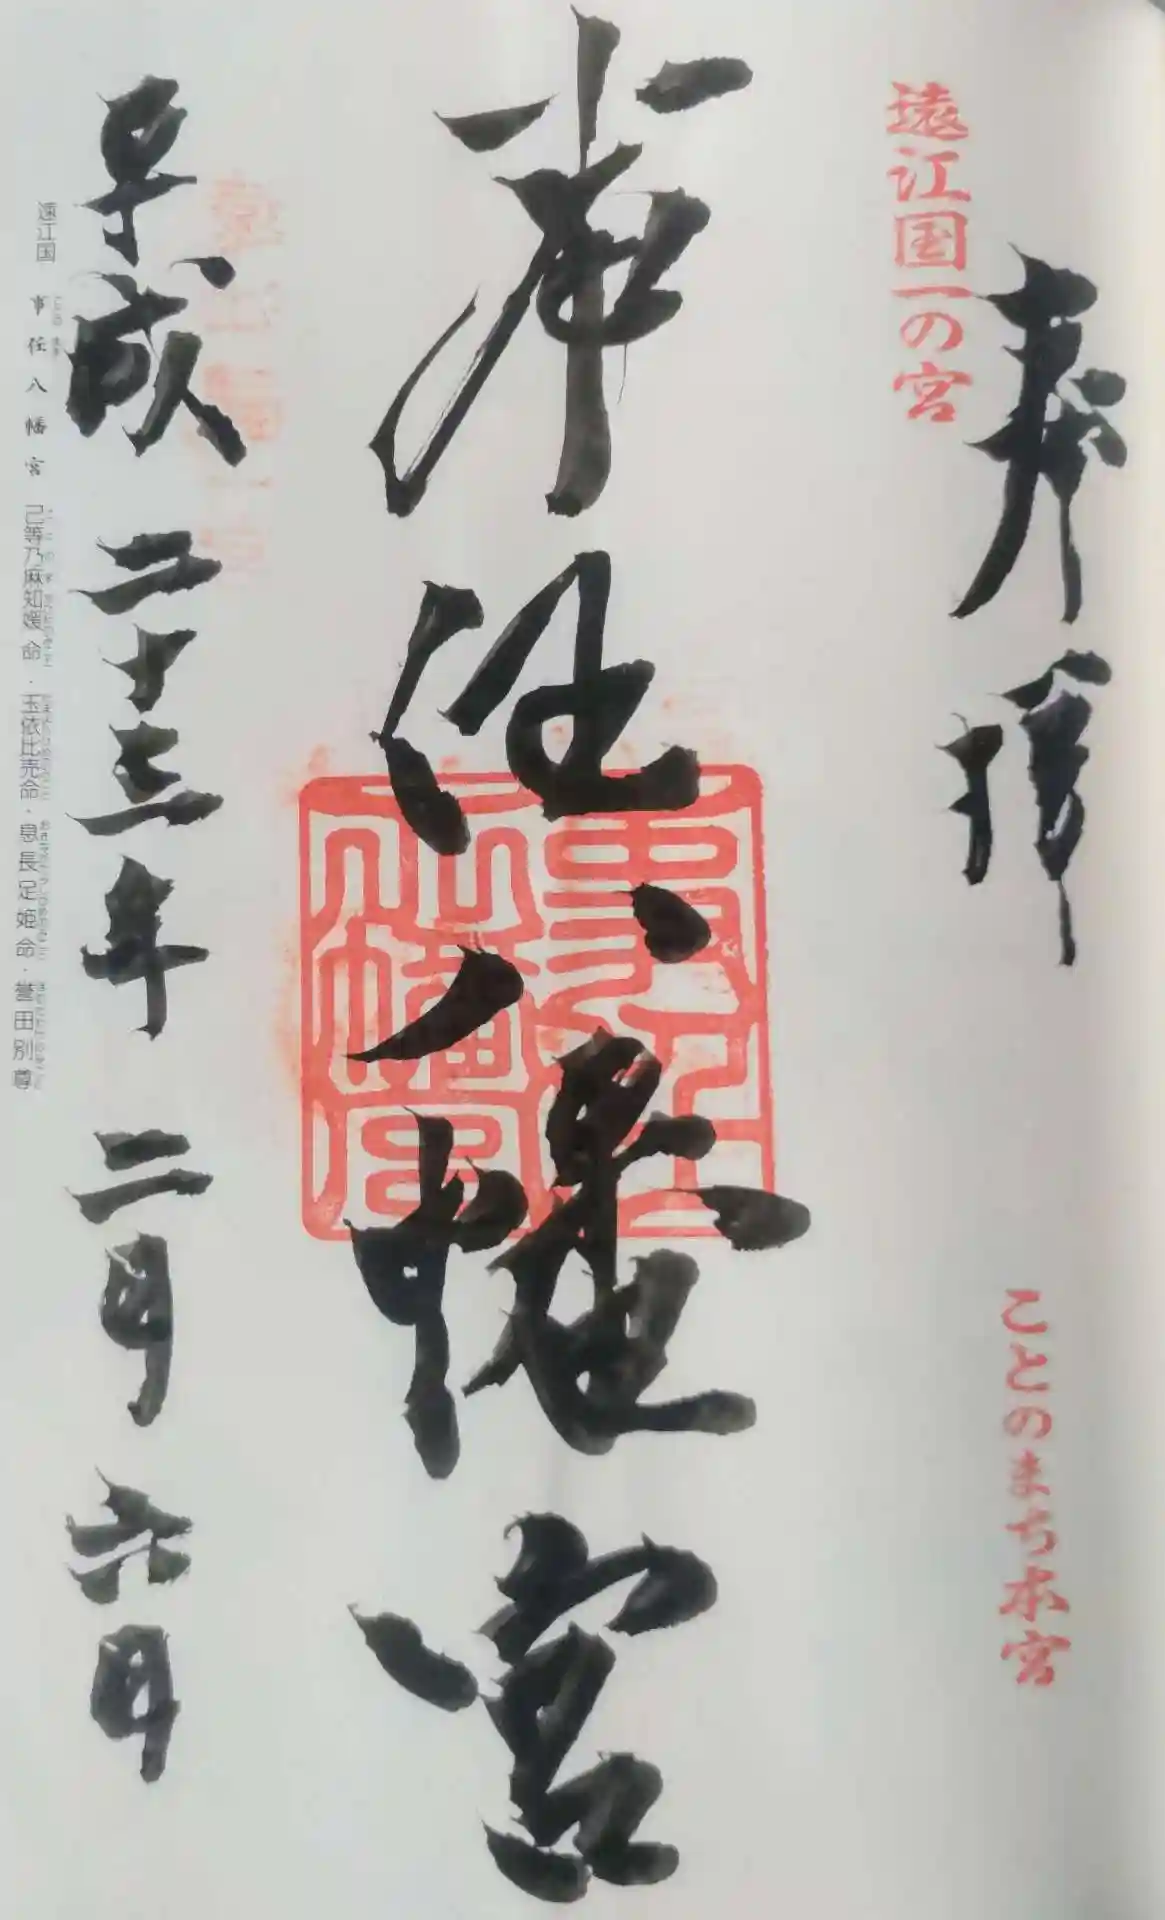 奉拝
遠江国一の宮
ことのまち本宮
事任八幡宮
事任
八幡宮
平成二十三年二月六日
遠江国 事任八幡宮 己等乃麻知媛命・玉依比売命・息長足姫命・誉田別尊